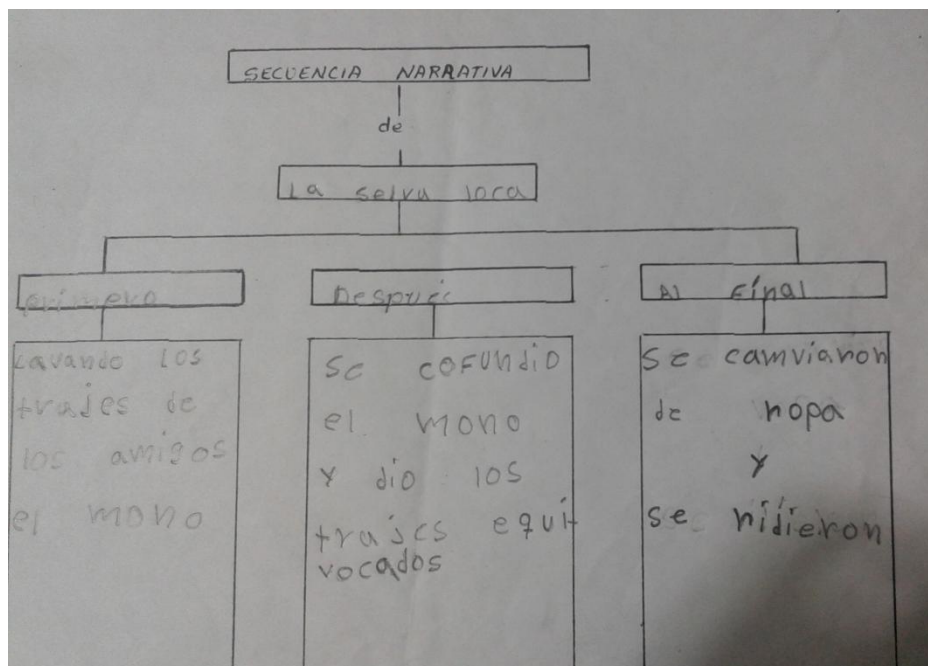 SECUENCIA NARRATIVA
de
La selva loca
primero
Lavando los
trajes de
los amigos
el mono
Después
se cofundio
el mono
y dio los
trajes equi
vocados
Al Final
se camviaron
de ropa
y
se ridieron